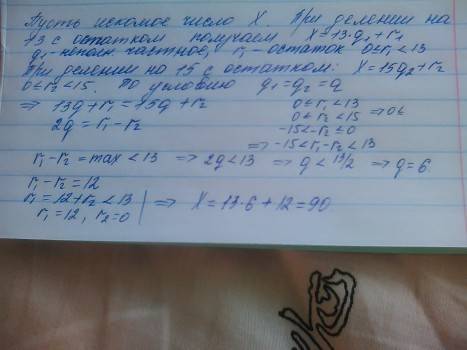 Пусть искомое число X. При делении на
13 с остатком получаем X=13·q₁+r₁
q₁-неполн частное, r₁-остаток 0≤r₁<13
При делении на 15 с остатком: X=15q₂+r₂
0≤r₂<15. По условию q₁=q₂=q
⇒ 13q+r₁=15q+r₂
2q=r₁-r₂
0≤r₁<13
0≤r₂<15 ⇒0≤
-15<-r₂≤0
⇒-15<r₁-r₂<13
r₁-r₂=max<13 ⇒2q<13 ⇒q<13/2 ⇒q=6
r₁-r₂=12
r₁=12+r₂<13 ⇒ X=13·6+12=90
r₁=12, r₂=0